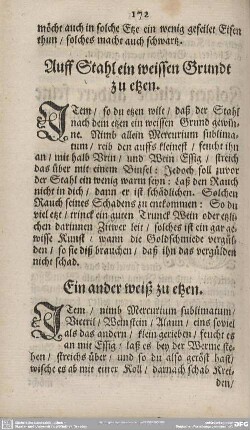 172
möcht auch in solche Etze ein wenig gefeilet Eisen
thun / solches macht auch schwartz.
Auff Stahl ein weissen Grundt
zu etzen.
ITem / so du etzen wilt / daß der Stahl
nach dem etzen ein weissen Grund gewin-
ne. Nimb allein Mercurium sublima-
tum / reib den auffs kleinest / feucht ihn
an / mit halb Brin / und Wein Essig / streich
das über mit einem Pinsel: Jedoch soll zuvor
der Stahl ein wenig warm seyn: Laß den Rauch
nicht in dich / dann er ist schädlichen. Solchen
Rauch seines Schadens zu entkommen: So du
viel etz / trinck ein guten Trunck Wein oder etz-
lichen darinnen Zitwer leit / solches ist ein gar ge-
wisse Kunst / wann die Goldschmiede vergül-
den / so sie diß brauchen / daß ihn das vergülden
nicht schad.
Ein ander weiß zu etzen.
ITem / nimb Mercurium sublimatum/
Victril / Weinstein / Alaun / eins so viel
als das ander / klein gerieben / feucht es
an mit Essig / laß es bey der Werme ste-
hen / streichs über / und so du also geröst hast/
wische es ab mit einer Koll / darnach schab Krei-
den/